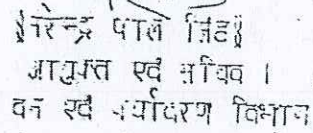 (नरेन्द्र पाल सिंह)
आयुक्त एवं सचिव ।
वन एवं पर्यावरण विभाग